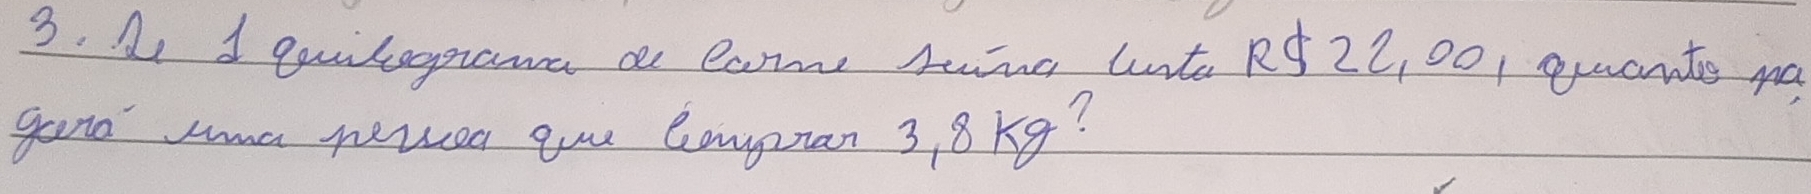 3. Se 1 quilograma de carne suína custa R$ 22,00, quanto pa
gará uma pessoa que comprar 3,8 Kg?